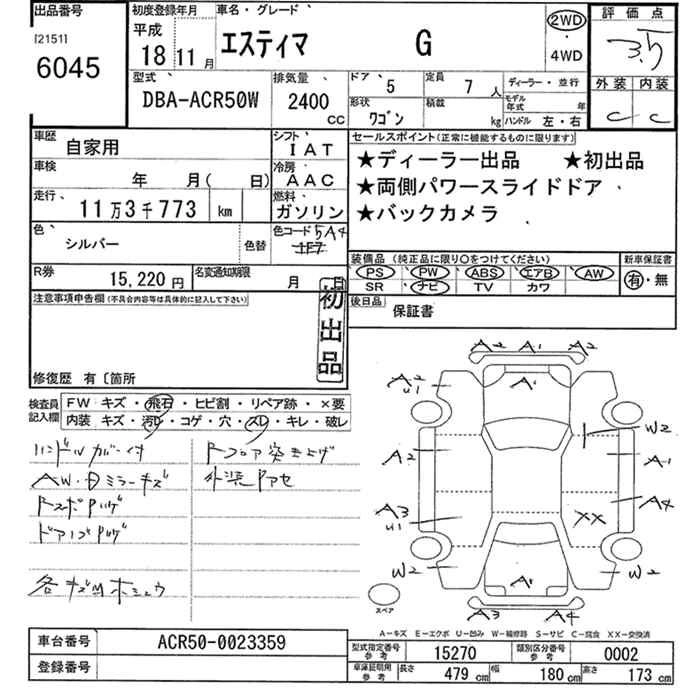 出品番号
[2151]
6045
初度登録年月
平成
18 11月
車名・グレード
エスティマ G
2WD
・
4WD
評価点
3.5
外装 内装
C C
型式
DBA-ACR50W
排気量
2400
CC
ドア 5
定員 7 人
形状 ワゴン
積載 kg
ディーラー・並行
モデル年式 年
ハンドル 左・右
車歴 自家用
シフト IAT
車検 年 月( 日)
冷房 AAC
走行 11万3千773 km
燃料 ガソリン
色 シルバー 色替
色コード 5A4
R券 15,220円
名変通知期限 月 日
セールスポイント(正常に機能するものに限ります)
★ディーラー出品 ★初出品
★両側パワースライドドア
★バックカメラ
装備品 (純正品に限り○をつけてください)
PS PW ABS エアB AW
SR ナビ TV カワ
新車保証書
有・無
後日品 保証書
注意事項申告欄(不具合内容等は具体的に記入して下さい)
初出品
修復歴 有〔箇所
検査員記入欄
FW キズ・飛石・ヒビ割・リペア跡・×要
内装 キズ・汚レ・コゲ・穴・スレ・キレ・破レ
ハンドルカバー付
Rフロア突き上げ
AW・Dミラーキズ
外装アセ
各キズ
A2 A1 A2
A2 U1
A1
W2
A2
A1
A3 U1
A4
XX
W2
A1
W2
A3 A4
スペア
A-キズ E-エクボ U-凹み W-補修跡 S-サビ C-腐食 XX-交換済
車台番号 ACR50-0023359
登録番号
型式指定番号 参考 15270
類別区分番号 参考 0002
車庫証明用 参考
長さ 479 cm
幅 180 cm
高さ 173 cm